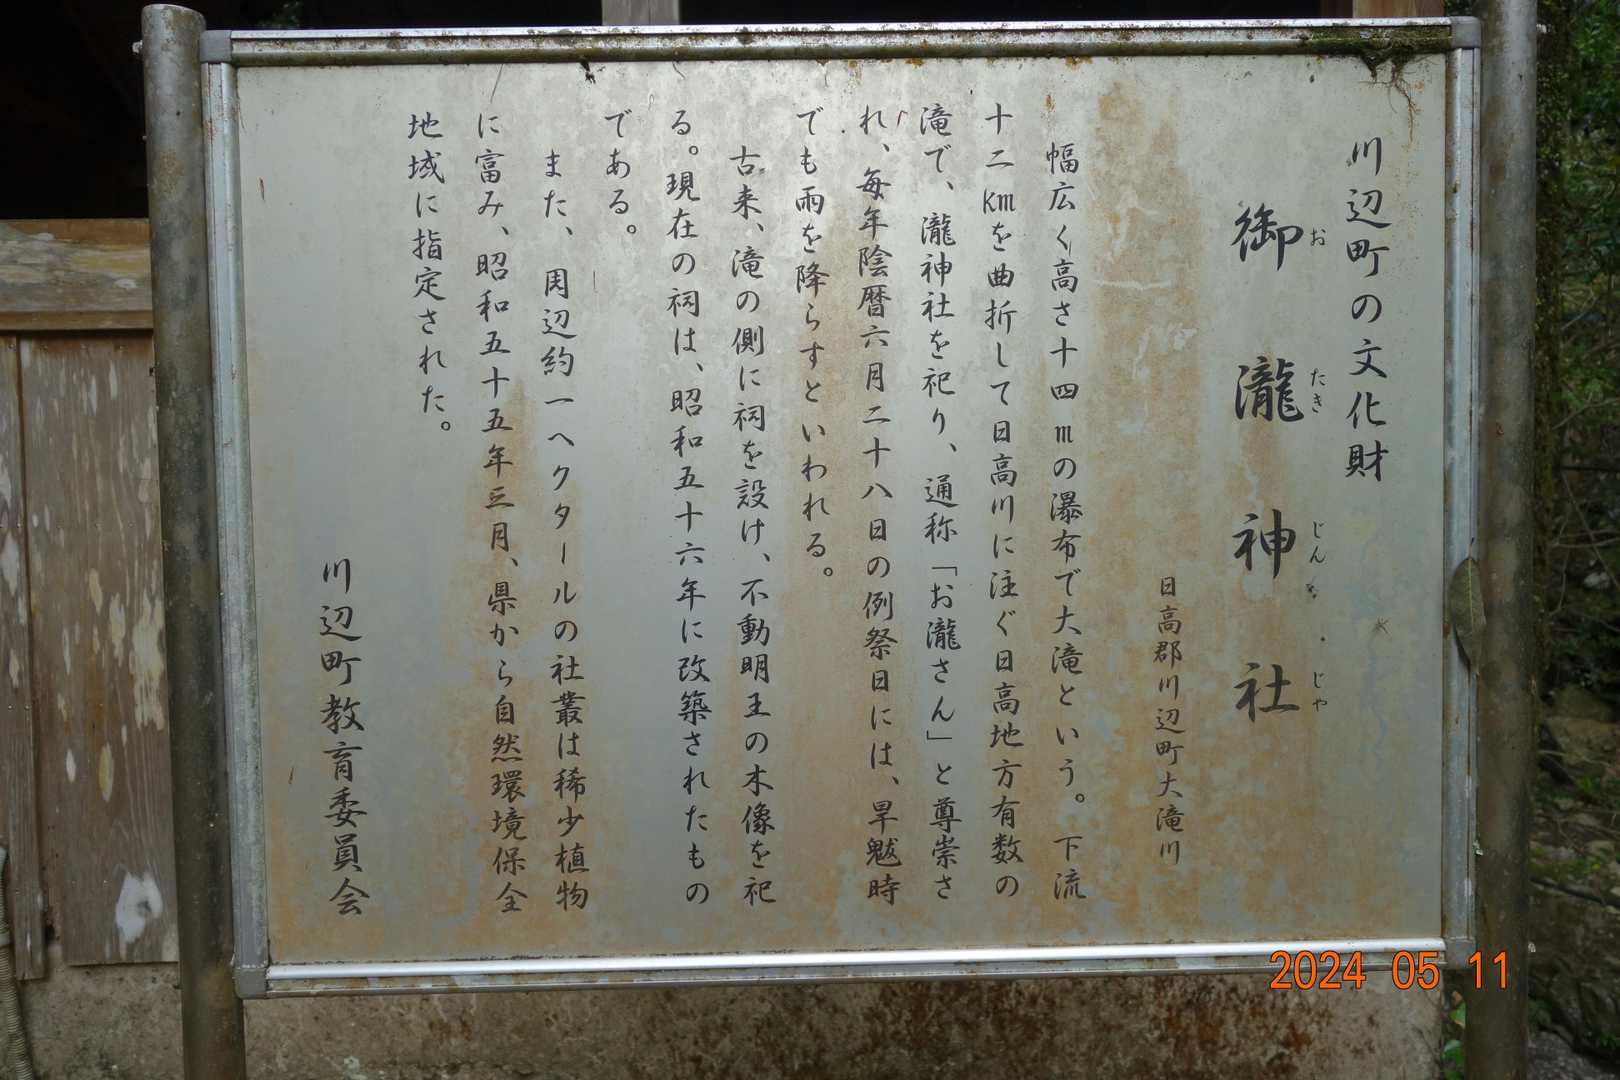 川辺町の文化財
御瀧神社
お たき じん じゃ
日高郡川辺町大滝川
幅広く高さ十四mの瀑布で大滝という。下流
十二kmを曲折して日高川に注ぐ日高地方有数の
滝で、瀧神社を祀り、通称「お瀧さん」と尊崇さ
れ、毎年陰暦六月二十八日の例祭日には、旱魃時
でも雨を降らすといわれる。
古来、滝の側に祠を設け、不動明王の木像を祀
る。現在の祠は、昭和五十六年に改築されたもの
である。
また、周辺約一ヘクタールの社叢は稀少植物
に富み、昭和五十五年三月、県から自然環境保全
地域に指定された。
川辺町教育委員会
2024 05 11